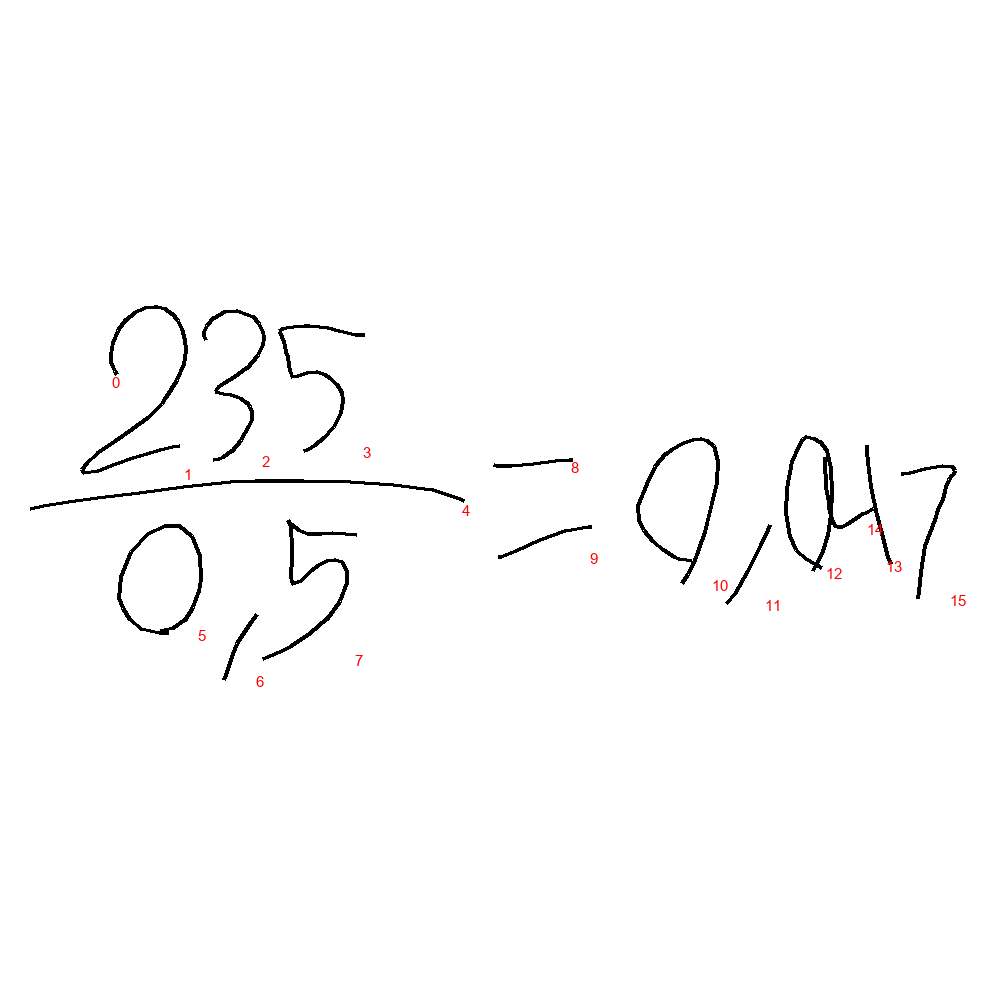 235
0,5
= 0,047
0
1
2
3
4
5
6
7
8
9
10
11
12
13
14
15